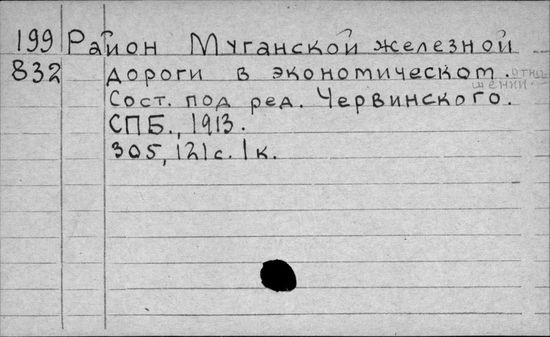 199 Район Муганской железной
832 дороги в экономическом. отно
шении
Сост. под ред. Червинского.
СПБ., 1913.
305, 121 с. 1 к.